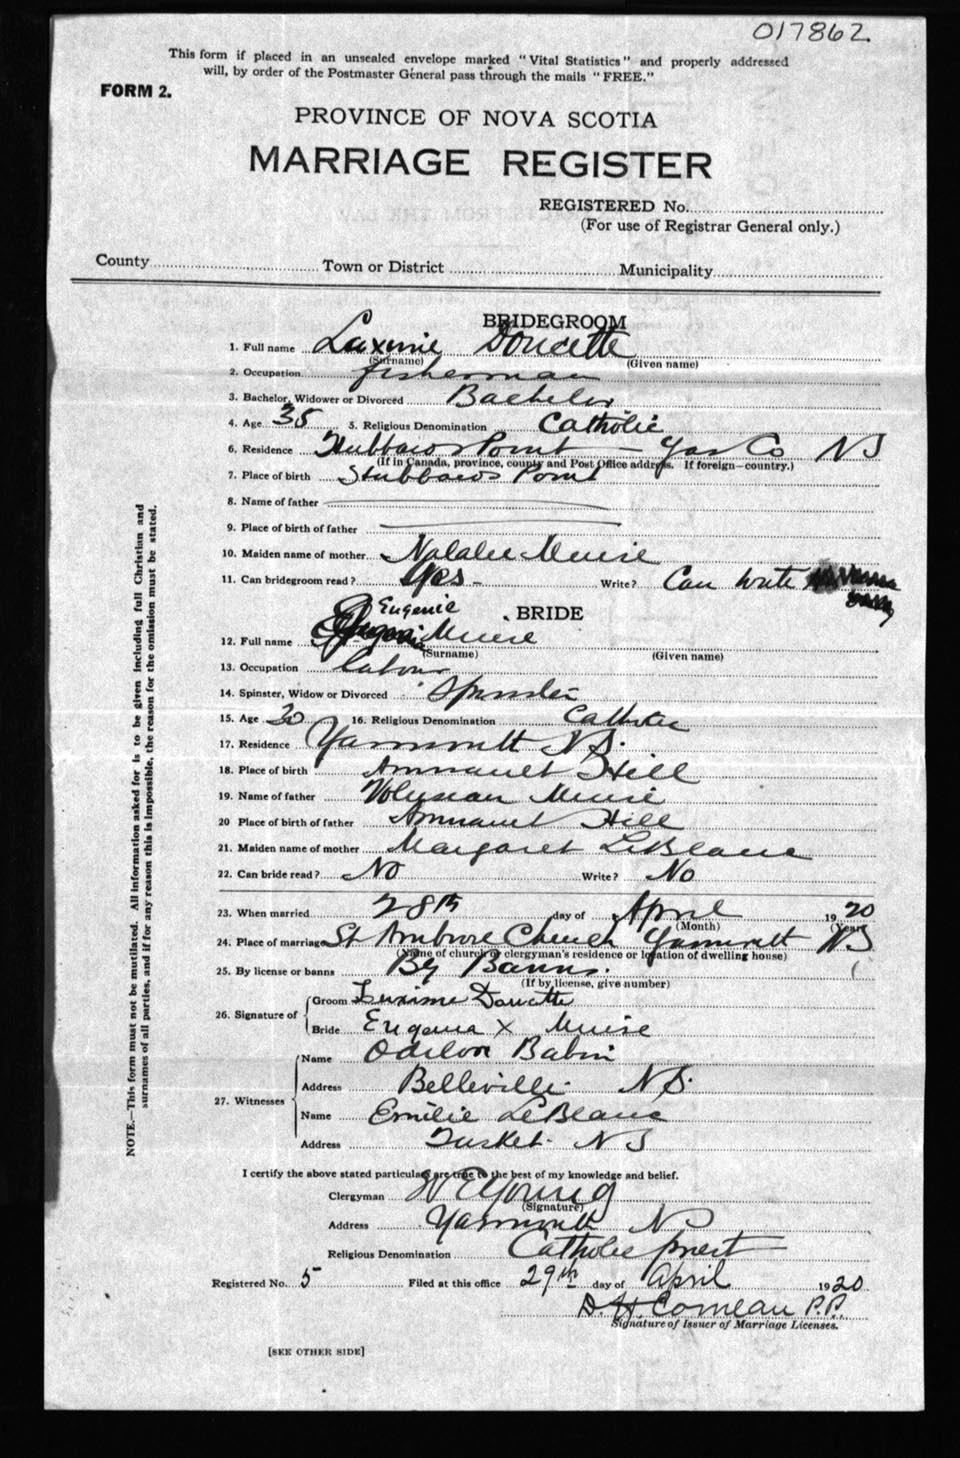 017862
This form if placed in an unsealed envelope marked "Vital Statistics" and properly addressed
will, by order of the Postmaster General pass through the mails "FREE."
FORM 2.
PROVINCE OF NOVA SCOTIA
MARRIAGE REGISTER
REGISTERED No.
(For use of Registrar General only.)
County Town or District Municipality
BRIDEGROOM
1. Full name Luxime Doucette
(Surname) (Given name)
2. Occupation fisherman
3. Bachelor, Widower or Divorced Bachelor
4. Age 35 5. Religious Denomination Catholic
6. Residence Point - Yar Co NS
(If in Canada, province, county and Post Office address. If foreign—country.)
7. Place of birth Point
8. Name of father
9. Place of birth of father
10. Maiden name of mother Muise
11. Can bridegroom read? Yes - Write? Can write
BRIDE
Eugenie
12. Full name Muise
(Surname) (Given name)
13. Occupation labour
14. Spinster, Widow or Divorced Spinster
15. Age 30 16. Religious Denomination Catholic
17. Residence Yarmouth N.S.
18. Place of birth Amirault Hill
19. Name of father Volusian Muise
20 Place of birth of father Amirault Hill
21. Maiden name of mother Margaret LeBlanc
22. Can bride read? No Write? No
23. When married 28th day of April 1920
(Month) (Year)
24. Place of marriage St Ambrose Church Yarmouth NS
(Name of church or clergyman's residence or location of dwelling house)
25. By license or banns By Banns.
(If by license, give number)
26. Signature of
Groom Luxime Doucette
Bride Eugenia X Muise
27. Witnesses
Name Odilon Babin
Address Belleville N.S.
Name Emilie LeBlanc
Address Tusket. NS
I certify the above stated particulars are true to the best of my knowledge and belief.
Clergyman W E Young
(Signature)
Address Yarmouth NS
Religious Denomination Catholic priest
Registered No. 5 Filed at this office 29th day of April 1920
D. H. Comeau P.P.
Signature of Issuer of Marriage Licenses.
[SEE OTHER SIDE]
NOTE.—This form must not be mutilated. All information asked for is to be given including full Christian and
surnames of all parties, and if for any reason this is impossible, the reason for the omission must be stated.